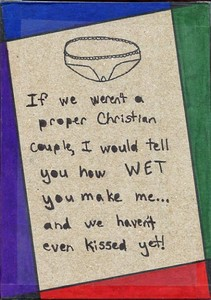 If we weren't a
proper Christian
couple, I would tell
you how WET
you make me...
and we haven't
even kissed yet!